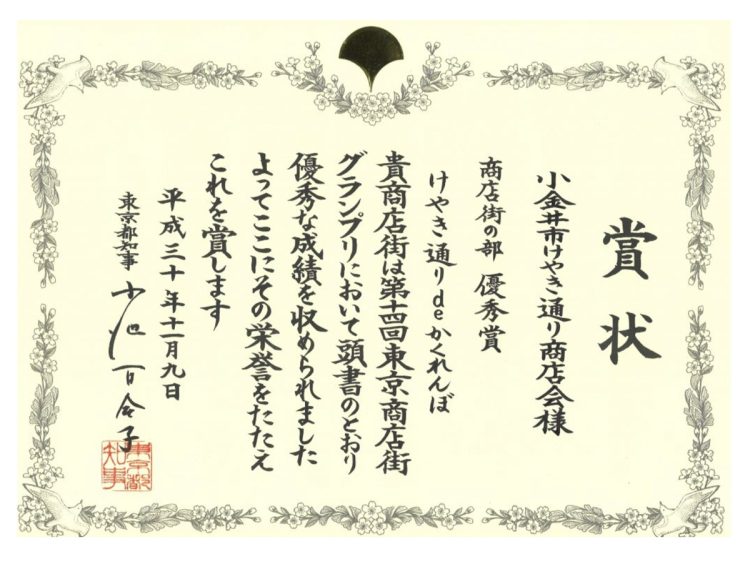 賞状
小金井市けやき通り商店会様
商店街の部 優秀賞
けやき通りdeかくれんぼ
貴商店街は第十四回東京商店街
グランプリにおいて頭書のとおり
優秀な成績を収められました
よってここにその栄誉をたたえ
これを賞します
平成三十年十一月九日
東京都知事 小池百合子
東京都
知事